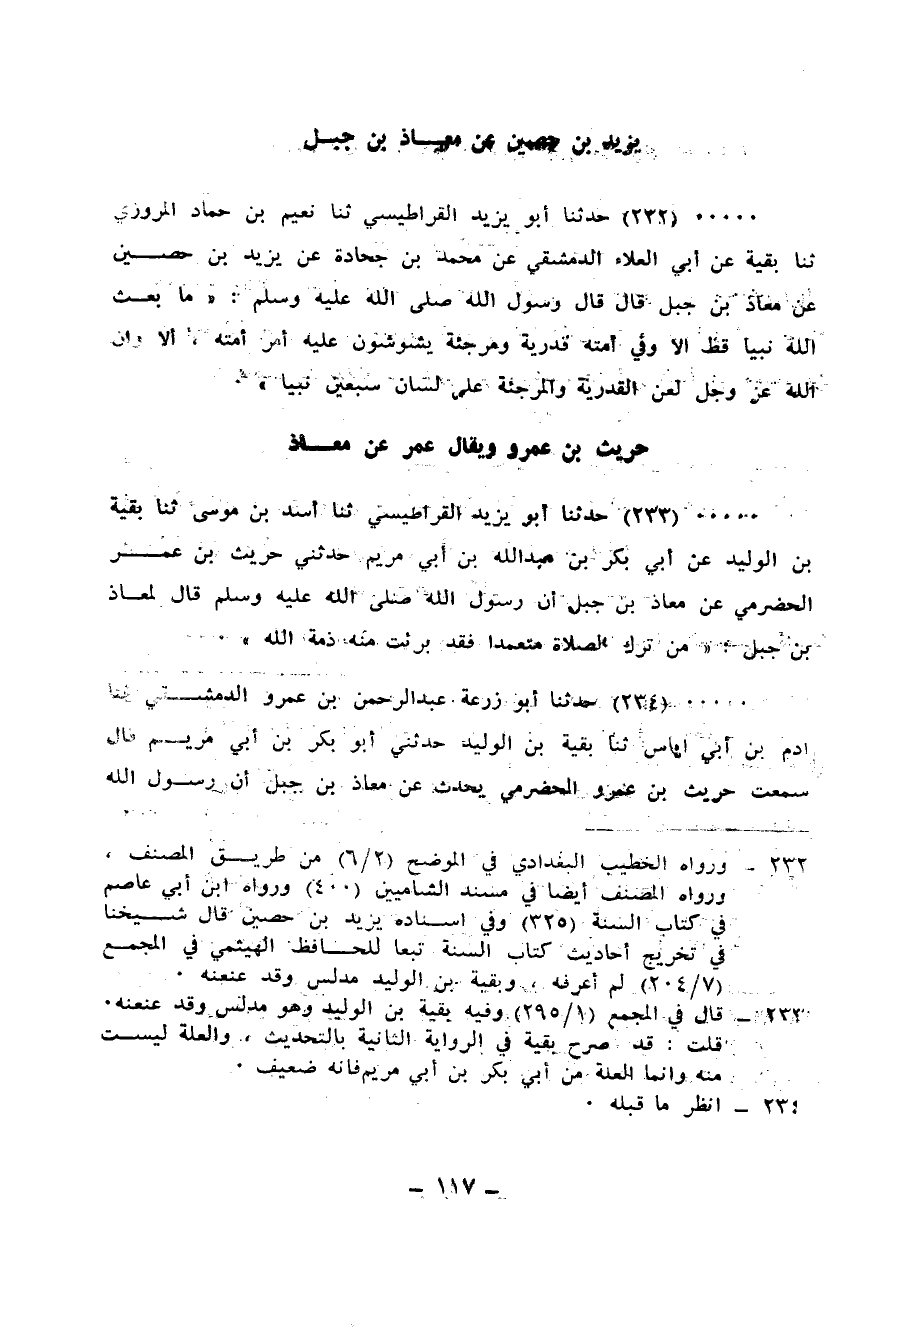 يزيد بن حصين عن معـاذ بن جبـل
٠٠٠٠٠ (٢٣٢) حدثنا أبو يزيد القراطيسي ثنا نعيم بن حماد المروزي
ثنا بقية عن أبي العلاء الدمشقي عن محمد بن جحادة عن يزيد بن حصـــين
عن معاذ بن جبل قال قال رسول الله صلى الله عليه وسلم : « ما بعث
الله نبيا قط الا وفي أمته قدرية ومرجئة يشوشون عليه أمر أمته ، ألا وان
الله عز وجل لعن القدرية والمرجئة على لسان سبعين نبيا » ٠
حريث بن عمرو ويقال عمر عن معـــاذ
٠٠٠٠٠ (٢٣٣) حدثنا أبو يزيد القراطيسي ثنا أسد بن موسى ثنا بقية
بن الوليد عن أبي بكر بن عبدالله بن أبي مريم حدثني حريث بن عمـــر
الحضرمي عن معاذ بن جبل أن رسول الله صلى الله عليه وسلم قال لمعـاذ
بن جبل : « من ترك الصلاة متعمدا فقد برئت منه ذمة الله » ٠
٠٠٠٠٠ (٢٣٤) حدثنا أبو زرعة عبدالرحمن بن عمرو الدمشـــقي ثنا
ادم بن أبي اياس ثنا بقية بن الوليد حدثني أبو بكر بن أبي مريـم قال
سمعت حريث بن عمرو الحضرمي يحدث عن معاذ بن جبل أن رسـول الله
٢٣٢ ـ ورواه الخطيب البغدادي في الموضح (٦/٢) من طريـق المصنف ،
ورواه المصنف أيضا في مسند الشاميين (٤٠٠) ورواه ابن أبي عاصم
في كتاب السنة (٣٢٥) وفي اسـناده يزيد بن حصين قال شـيخنا
في تخريج أحاديث كتاب السنة تبعا للحـافظ الهيثمي في المجمـع
(٢٠٤/٧) لم أعرفه ، وبقية بن الوليد مدلس وقد عنعنه ٠
٢٣٣ ـ قال في المجمع (٢٩٥/١) وفيه بقية بن الوليد وهو مدلس وقد عنعنه٠
قلت : قد صرح بقية في الرواية الثانية بالتحديث ، والعلة ليسـت
منه وانما العلة من أبي بكر بن أبي مريم فانه ضعيف ٠
٢٣٤ ـ انظر ما قبله ٠
ـ ١١٧ ـ